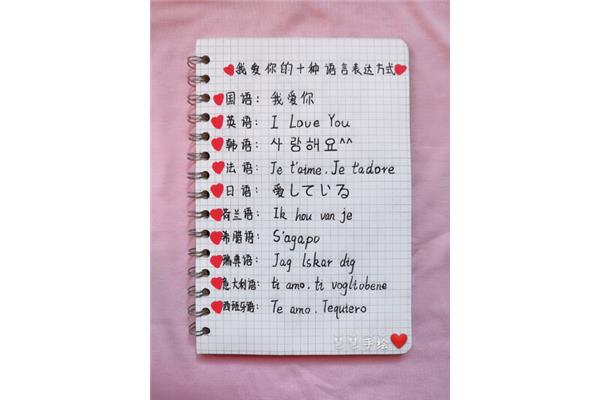 我爱你的十种语言表达方式
国语: 我爱你
英语: I Love You
韩语: 사랑해요^^
法语: Je t'aime. Je t'adore
日语: 愛している
荷兰语: Ik hou van je
希腊语: S'agapo
瑞典语: Jag Iskar dig
意大利语: ti amo. ti vogliobene
西班牙语: Te amo. Tequiero
慧慧手绘